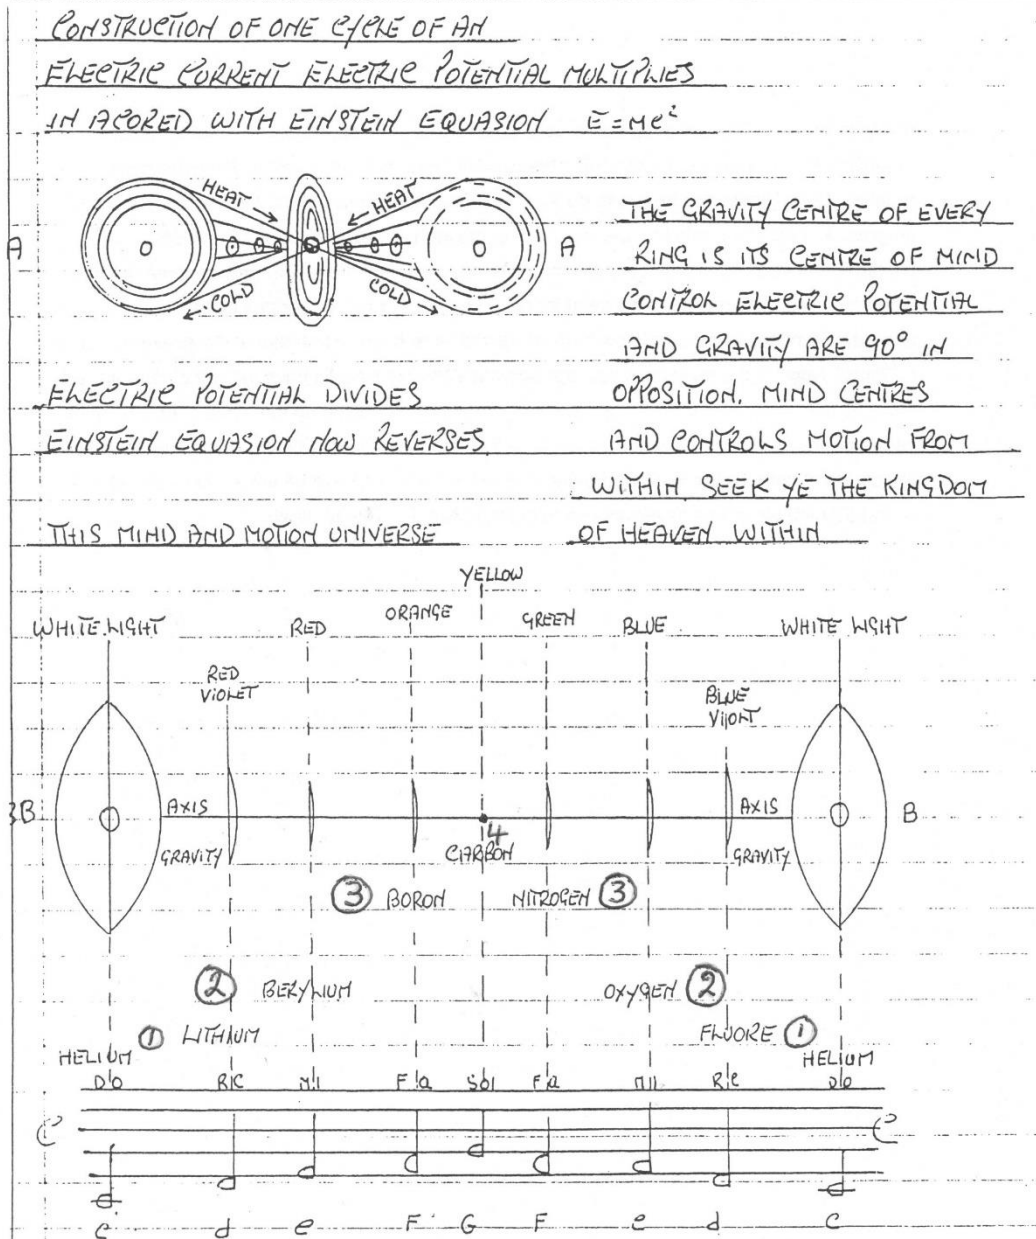 CONSTRUCTION OF ONE CYCLE OF AN
ELECTRIC CURRENT ELECTRIC POTENTIAL MULTIPLIES
IN ACORED WITH EINSTEIN EQUASION E=MC²
HEAT
HEAT
A
A
COLD
COLD
THE GRAVITY CENTRE OF EVERY
RING IS ITS CENTRE OF MIND
CONTROL ELECTRIC POTENTIAL
AND GRAVITY ARE 90° IN
OPPOSITION. MIND CENTRES
AND CONTROLS MOTION FROM
WITHIN SEEK YE THE KINGDOM
OF HEAVEN WITHIN
ELECTRIC POTENTIAL DIVIDES
EINSTEIN EQUASION NOW REVERSES
THIS MIND AND MOTION UNIVERSE
YELLOW
ORANGE
GREEN
WHITE LIGHT
RED
BLUE
WHITE LIGHT
RED
VIOLET
BLUE
VIOLT
B
AXIS
AXIS
B
GRAVITY
4
CARBON
GRAVITY
3 BORON
NITROGEN 3
2 BERYLIUM
OXYGEN 2
1 LITHIUM
FLUORE 1
HELIUM
HELIUM
DO RE MI FA SOL FA MI RE DO
C C
C d e F G F e d C